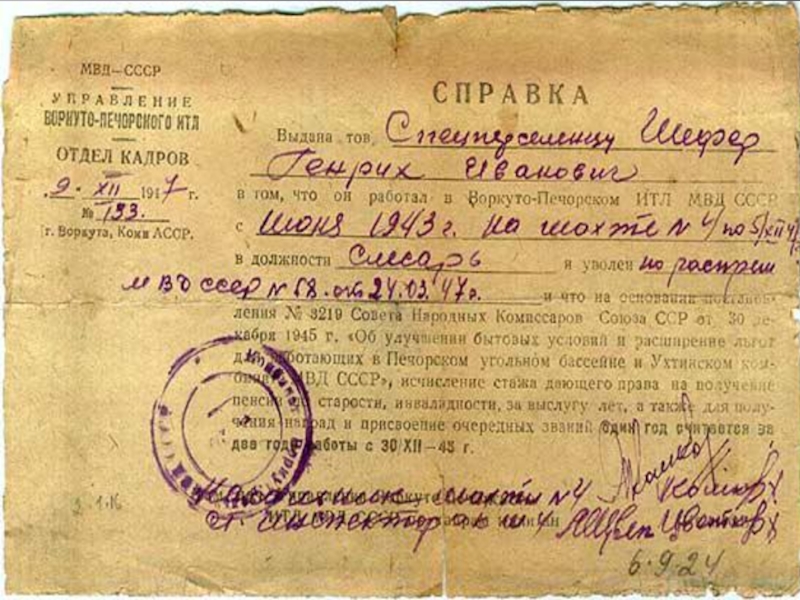 МВД—СССР
УПРАВЛЕНИЕ
ВОРКУТО-ПЕЧОРСКОГО ИТЛ
ОТДЕЛ КАДРОВ
9. XII 1947 г.
№ 133.
г. Воркута, Коми АССР.
СПРАВКА
Выдана тов. Спецпереселенцу Шефер
Генрих Иванович
в том, что он работал в Воркуто-Печорском ИТЛ МВД СССР
с июня 1943 г. на шахте № 4 по 5/XII 47
в должности Слесарь и уволен по распрям
МВД СССР № 58 от 24.03.47 г. и что на основании постанов-
ления № 3219 Совета Народных Комиссаров Союза ССР от 30 де-
кабря 1945 г. «Об улучшении бытовых условий и расширение льгот
для работающих в Печорском угольном бассейне и Ухтинском ком-
бинате МВД СССР», исчисление стажа дающего права на получение
пенсии по старости, инвалидности, за выслугу лет, а также для полу-
чения наград и присвоение очередных званий один год считается за
два года работы с 30 XII-45 г.
Комбинат Ворку
МВД СССР
Начальник шахты № 4
ст. инспектор ок ш 4 Цветков
6.9.24